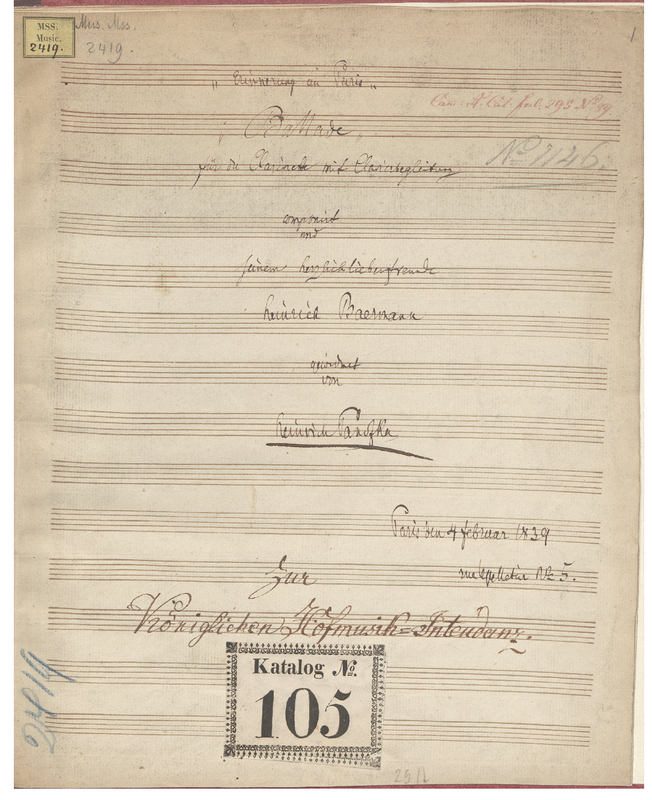 MSS.
Music.
2419.
Mus. Mss.
2419.
1
„Erinnerung an Paris„
Cim. A. Cat. fol. 295 No 19.
Ballade
No 1146.
für die Clarinette mit Clavierbegleitung
componirt
und
seinem herzlichlieben freunde
Heinrich Baermann
gewidmet
von
Heinrich Panofka
Paris den 4 februar 1839
No 5.
Zur
Königlichen Hofmusik=Intendanz.
Katalog No.
105
2419